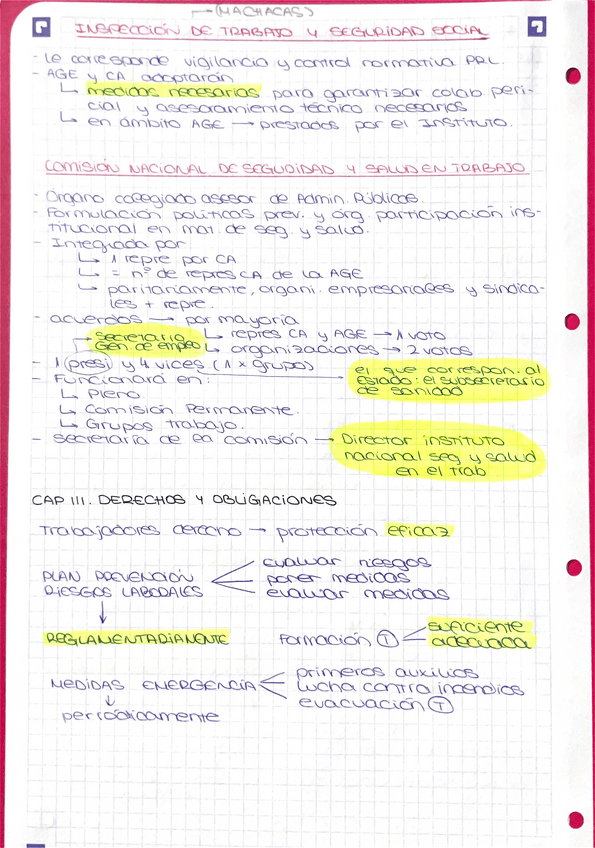 → (MACHACAS)
INSPECCIÓN DE TRABAJO Y SEGURIDAD SOCIAL
- Le corresponde vigilancia y control normativa PRL.
- AGE y CA adoptarán
↳ medidas necesarias para garantizar colab. peri-
cial y asesoramiento técnico necesarios
↳ en ámbito AGE → prestados por el Instituto.
COMISIÓN NACIONAL DE SEGURIDAD Y SALUD EN TRABAJO
- Órgano colegiado asesor de Admin. Públicas.
- Formulación políticas prev. y órg. participación ins-
titucional en mat. de seg. y salud.
- Integrada por
↳ 1 repre por CA
↳ = nº de repres CA de la AGE
↳ paritariamente, organi. empresariales y sindica-
les + repre.
- acuerdos → por mayoría
↳ repres CA y AGE → 1 voto
↳ organizaciones → 2 votos
Secretario
Gen. de empleo
- 1 (presi) y 4 vices (1 x grupo)
el que correspon. al
Estado: el subsecretario
de sanidad
- Funcionará en:
↳ Pleno
↳ Comisión Permanente.
↳ Grupos trabajo.
- Secretaría de la comisión → Director instituto
nacional seg y salud
en el trab
CAP III. DERECHOS Y OBLIGACIONES
Trabajadores derecho → protección eficaz
PLAN PREVENCIÓN
RIESGOS LABORALES
evaluar riesgos
poner medidas
evaluar medidas
REGLAMENTARIAMENTE
Formación (T)
suficiente
adecuada
MEDIDAS EMERGENCIA
primeros auxilios
lucha contra incendios
evacuación (T)
periódicamente